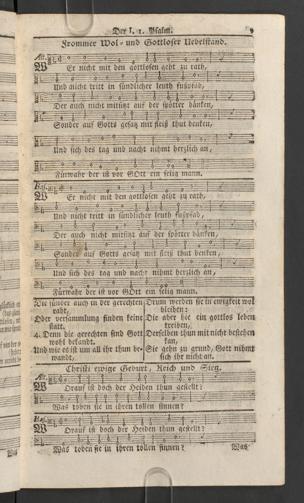 Der I. 1. Psalm. 9
Frommer Wol- und Gottloser Uebelstand.
Alt.
WEr nicht mit den gottlosen geht zu rath,
Und nicht tritt in sündlicher leuth fußpfad,
Der auch nicht mitsitzt auf der spötter bänken,
Sonder auf Gotts gesatz mit fleiß thut denken,
Und sich des tag und nacht nihmt herzlich an,
Fürwahr der ist vor GOtt ein selig mann.
Bas.
WEr nicht mit den gottlosen geht zu rath,
Und nicht tritt in sündlicher leuth fußpfad,
Der auch nicht mitsitzt auf der spötter bänken,
Sonder auf Gotts gesatz mit fleiß thut denken,
Und sich des tag und nacht nihmt herzlich an,
Fürwahr der ist vor GOtt ein selig mann.
Die sünder auch in der gerechten
raht,
Ober versammlung finden keine
statt.
4. Denn die gerechten sind Gott
wohl bekandt.
Und wie es ist um all ihr thun be-
wandt,
Drum werden sie in ewigkeit wol
bleiben:
Die aber hie ein gottlos leben
treiben,
Derselben thun mit nicht bestehen
kan,
Sie gehn zu grund, Gott nihmt
sich ihr nicht an.
Christi ewige Geburt, Reich und Sieg.
Alt.
WOrauf ist doch der Heiden thun gestellt?
Was toben sie in ihren tollen sinnen?
Bas.
WOrauf ist doch der Heiden thun gestellt?
Was toben sie in ihren tollen sinnen?
Was